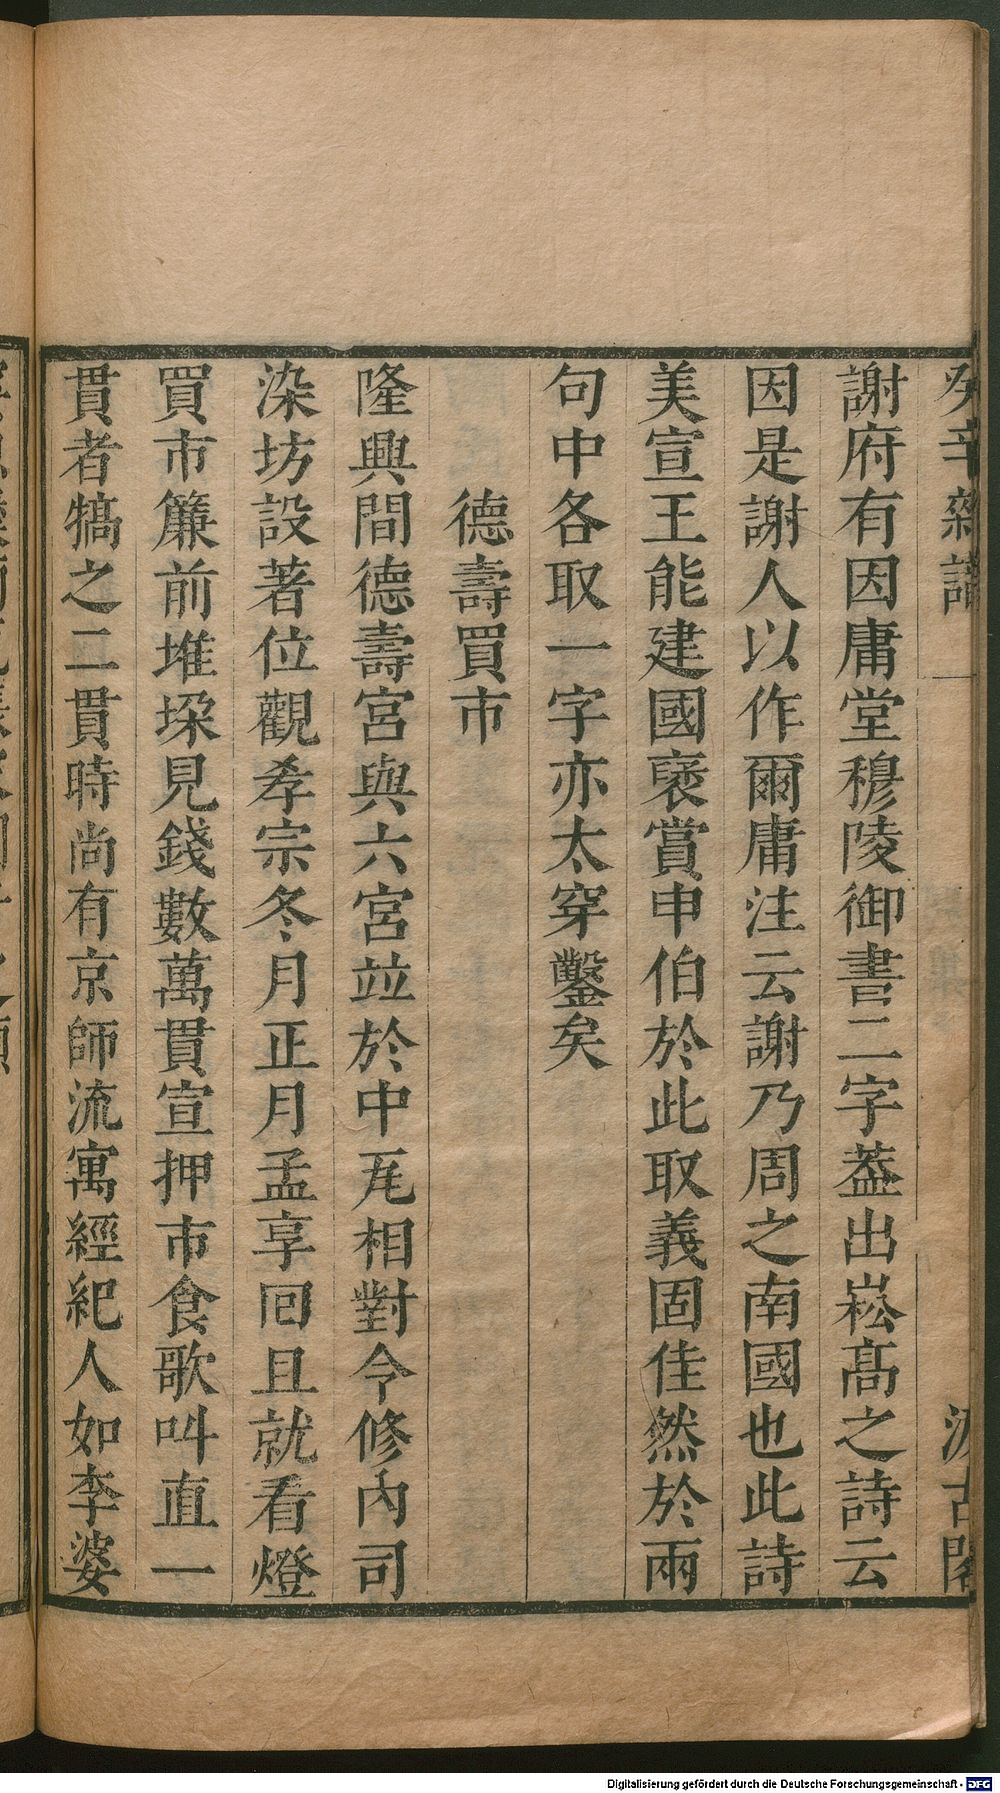 癸辛雜識 一 汲古閣
謝府有因庸堂穆陵御書二字葢出崧髙之詩云
因是謝人以作爾庸注云謝乃周之南國也此詩
美宣王能建國褒賞申伯於此取義固佳然於兩
句中各取一字亦太穿鑿矣
德壽買市
隆興間德壽宮與六宮竝於中瓦相對令修內司
染坊設著位觀孝宗冬月正月孟享回且就看燈
買市簾前堆垛見錢數萬貫宣押市食歌叫直一
貫者犒之二貫時尚有京師流寓經紀人如李婆
Digitalisierung gefördert durch die Deutsche Forschungsgemeinschaft - DFG